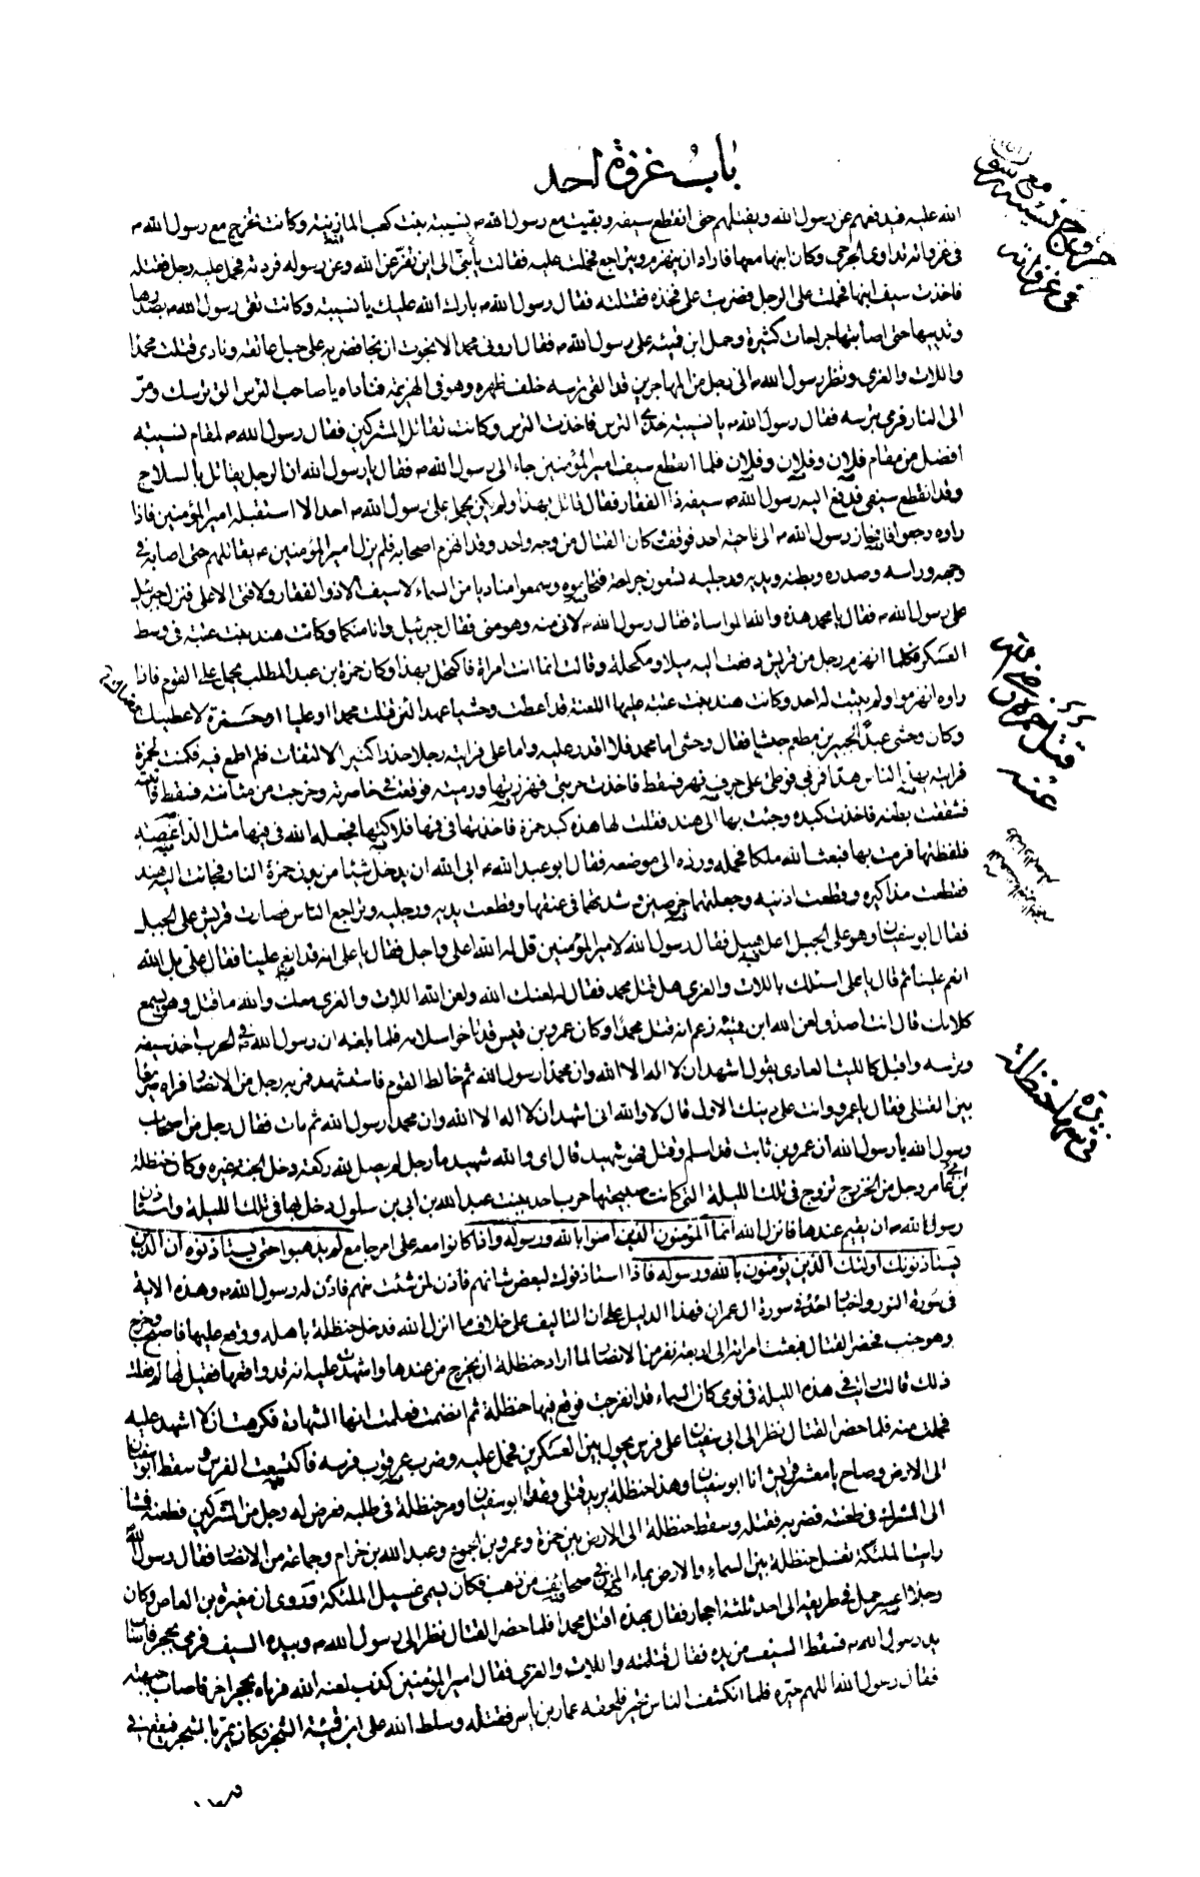 باب غزوة احد
الله عليه فيدفعهم عن رسول الله ويقتلهم حتى انقطع سيفه وبقيت مع رسول الله ص نسيبة بنت كعب المازنية وكانت تخرج مع رسول الله ص
في غزواته تداوى الجرحى وكان ابنها معها فاراد ان ينهزم ويتراجع فحملت عليه فقالت يا بنى الى اين تفر عن الله وعن رسوله فردته فحمل عليه رجل فقتله
فاخذت سيف ابنها فحملت على الرجل فضربت على فخذه فقتلته فقال رسول الله ص بارك الله عليك يا نسيبة وكانت تقى رسول الله ص بصدرها
وثدييها حتى اصابتها جراحات كثيرة وحمل ابن قميئه على رسول الله ص فقال ارونى محمدا لا نجوت ان نجا فضربه على حبل عاتقه ونادى قتلت محمدا
واللات والعزى ونظر رسول الله ص الى رجل من المهاجرين قد القى ترسه خلف ظهره وهو في الهزيمة فناداه يا صاحب الترس الق ترسك ومر
الى النار فرمى بترسه فقال رسول الله ص يا نسيبة خذى الترس فاخذت الترس وكانت تقاتل المشركين فقال رسول الله ص لمقام نسيبة
افضل من مقام فلان وفلان وفلان فلما انقطع سيف امير المؤمنين جاء الى رسول الله ص فقال يا رسول الله ان الرجل يقاتل بالسلاح
وقد انقطع سيفى فدفع اليه رسول الله ص سيفه ذا الفقار فقال قاتل بهذا ولم يكن يحمل على رسول الله ص احد الا استقبله امير المؤمنين فاذا
راوه رجعوا فانحاز رسول الله ص الى ناحية احد فوقف وكان القتال من وجه واحد وقد انهزم اصحابه فلم يزل امير المؤمنين ع يقاتلهم حتى اصابه في
وجهه وراسه وصدره وبطنه ويديه ورجليه تسعون جراحة فتحاموه وسمعوا مناديا من السماء لا سيف الا ذو الفقار ولا فتى الا على فنزل جبرئيل
على رسول الله ص فقال يا محمد هذه والله المواساة فقال رسول الله ص لانى منه وهو منى فقال جبرئيل وانا منكما وكانت هند بنت عتبة في وسط
العسكر فكلما انهزم رجل من قريش دفعت اليه ميلا ومكحلة وقالت انما انت امراة فاكتحل بهذا وكان حمزة بن عبد المطلب يحمل على القوم فاذا
راوه انهزموا ولم يثبت له احد وكانت هند بنت عتبة عليها اللعنة قد اعطت وحشيا عهدا لئن قتلت محمدا او عليا او حمزة لاعطينك
وكان وحشى عبدا لجبير بن مطعم حبشيا فقال وحشى اما محمد فلا اقدر عليه واما على فرايته رجلا حذرا كثير الالتفات فلم اطمع فيه فكمنت لحمزة
فرايته يهد الناس هدا فمر بى فوطئ على جرف نهر فسقط فاخذت حربتى فهززتها ورميته فوقعت في خاصرته وخرجت من مثانته فسقط فاتيته
فشققت بطنه فاخذت كبده وجئت بها الى هند فقلت لها هذه كبد حمزة فاخذتها في فمها فلاكتها فجعله الله في فيها مثل الداغصة
فلفظتها فرمت بها فبعث الله ملكا فحمله ورده الى موضعه فقال ابو عبد الله ع ابى الله ان يدخل شيئا من بدن حمزة النار فجاءت اليه هند
فقطعت مذاكيره وقطعت اذنيه وجعلتهما خرصين وشدتهما في عنقها وقطعت يديه ورجليه وتراجع الناس فصارت قريش على الجبل
فقال ابو سفيان وهو على الجبل اعل هبل فقال رسول الله لامير المؤمنين قل له الله اعلى واجل فقال يا على انه قد انعم علينا فقال على بل الله
انعم علينا ثم قال يا على اسئلك باللات والعزى هل قتل محمد فقال له لعنك الله ولعن الله اللات والعزى معك والله ما قتل وهو يسمع
كلامك قال انت اصدق لعن الله ابن قميئه زعم انه قتل محمدا وكان عمرو بن قيس قد تاخر اسلامه فلما بلغه ان رسول الله في الحرب اخذ سيفه
وترسه واقبل كالليث العادى يقول اشهد ان لا اله الا الله وان محمدا رسول الله ثم خالط القوم فاستشهد فمر به رجل من الانصار فراه صريعا
بين القتلى فقال يا عمرو وانت على دينك الاول قال لا والله انى اشهد ان لا اله الا الله وان محمدا رسول الله ثم مات فقال رجل من اصحاب
رسول الله يا رسول الله ان عمرو بن ثابت قد اسلم وقتل فهو شهيد قال اى والله شهيد ما رجل لم يصل لله ركعة دخل الجنة غيره وكان حنظلة
بن ابى عامر رجل من الخزرج تزوج في تلك الليلة التى كانت صبيحتها حرب احد ببنت عبد الله بن ابى بن سلول ودخل بها في تلك الليلة واستاذن
رسول الله ص ان يقيم عندها فانزل الله انما المؤمنون الذين امنوا بالله ورسوله واذا كانوا معه على امر جامع لم يذهبوا حتى يستاذنوه ان الذين
يستاذنونك اولئك الذين يؤمنون بالله ورسوله فاذا استاذنوك لبعض شانهم فاذن لمن شئت منهم فاذن له رسول الله ص وهذه الاية
في سورة النور واخبار احد في سورة ال عمران فهذا الدليل على ان التاليف على خلاف ما انزل الله فدخل حنظلة باهله ووقع عليها فاصبح وخرج
وهو جنب فحضر القتال فبعثت امراته الى اربعة نفر من الانصار لما اراد حنظلة ان يخرج من عندها واشهدت عليه انه قد واقعها فقيل لها لم فعلت
ذلك قالت رايت في هذه الليلة في نومى كان السماء قد انفرجت فوقع فيها حنظلة ثم انضمت فعلمت انها الشهادة فكرهت ان لا اشهد عليه
فحملت منه فلما حضر القتال نظر الى ابى سفيان على فرس يجول بين العسكرين فحمل عليه وضرب عرقوب فرسه فاكتسعت الفرس وسقط ابو سفيان
الى الارض وصاح يا معشر قريش انا ابو سفيان وهذا حنظلة يريد قتلى وعدا ابو سفيان ومر حنظلة في طلبه فعرض له رجل من المشركين فطعنه فمشى
الى المشرك في طعنته فضربه فقتله وسقط حنظلة الى الارض بين حمزة وعمرو بن الجموح وعبد الله بن حزام وجماعة من الانصار فقال رسول الله
رايت الملئكة تغسل حنظلة بين السماء والارض بماء المزن في صحائف من ذهب فكان يسمى غسيل الملئكة وروى ان مغيرة بن العاص كان
رجلا اعسر حمل في طريقه الى احد ثلثة احجار فقال بهذه اقتل محمدا فلما حضر القتال نظر الى رسول الله ص وبيده السيف فرمى بحجر فاصاب
يد رسول الله ص فسقط السيف من يده فقال قتلته واللات والعزى فقال امير المؤمنين كذب لعنه الله فرماه بحجر اخر فاصاب جبهته
فقال رسول الله اللهم حيره فلما انكشف الناس تحير فلحقه عمار بن ياسر فقتله وسلط الله على ابن قميئة الشجر فكان يمر بالشجر فيقع في